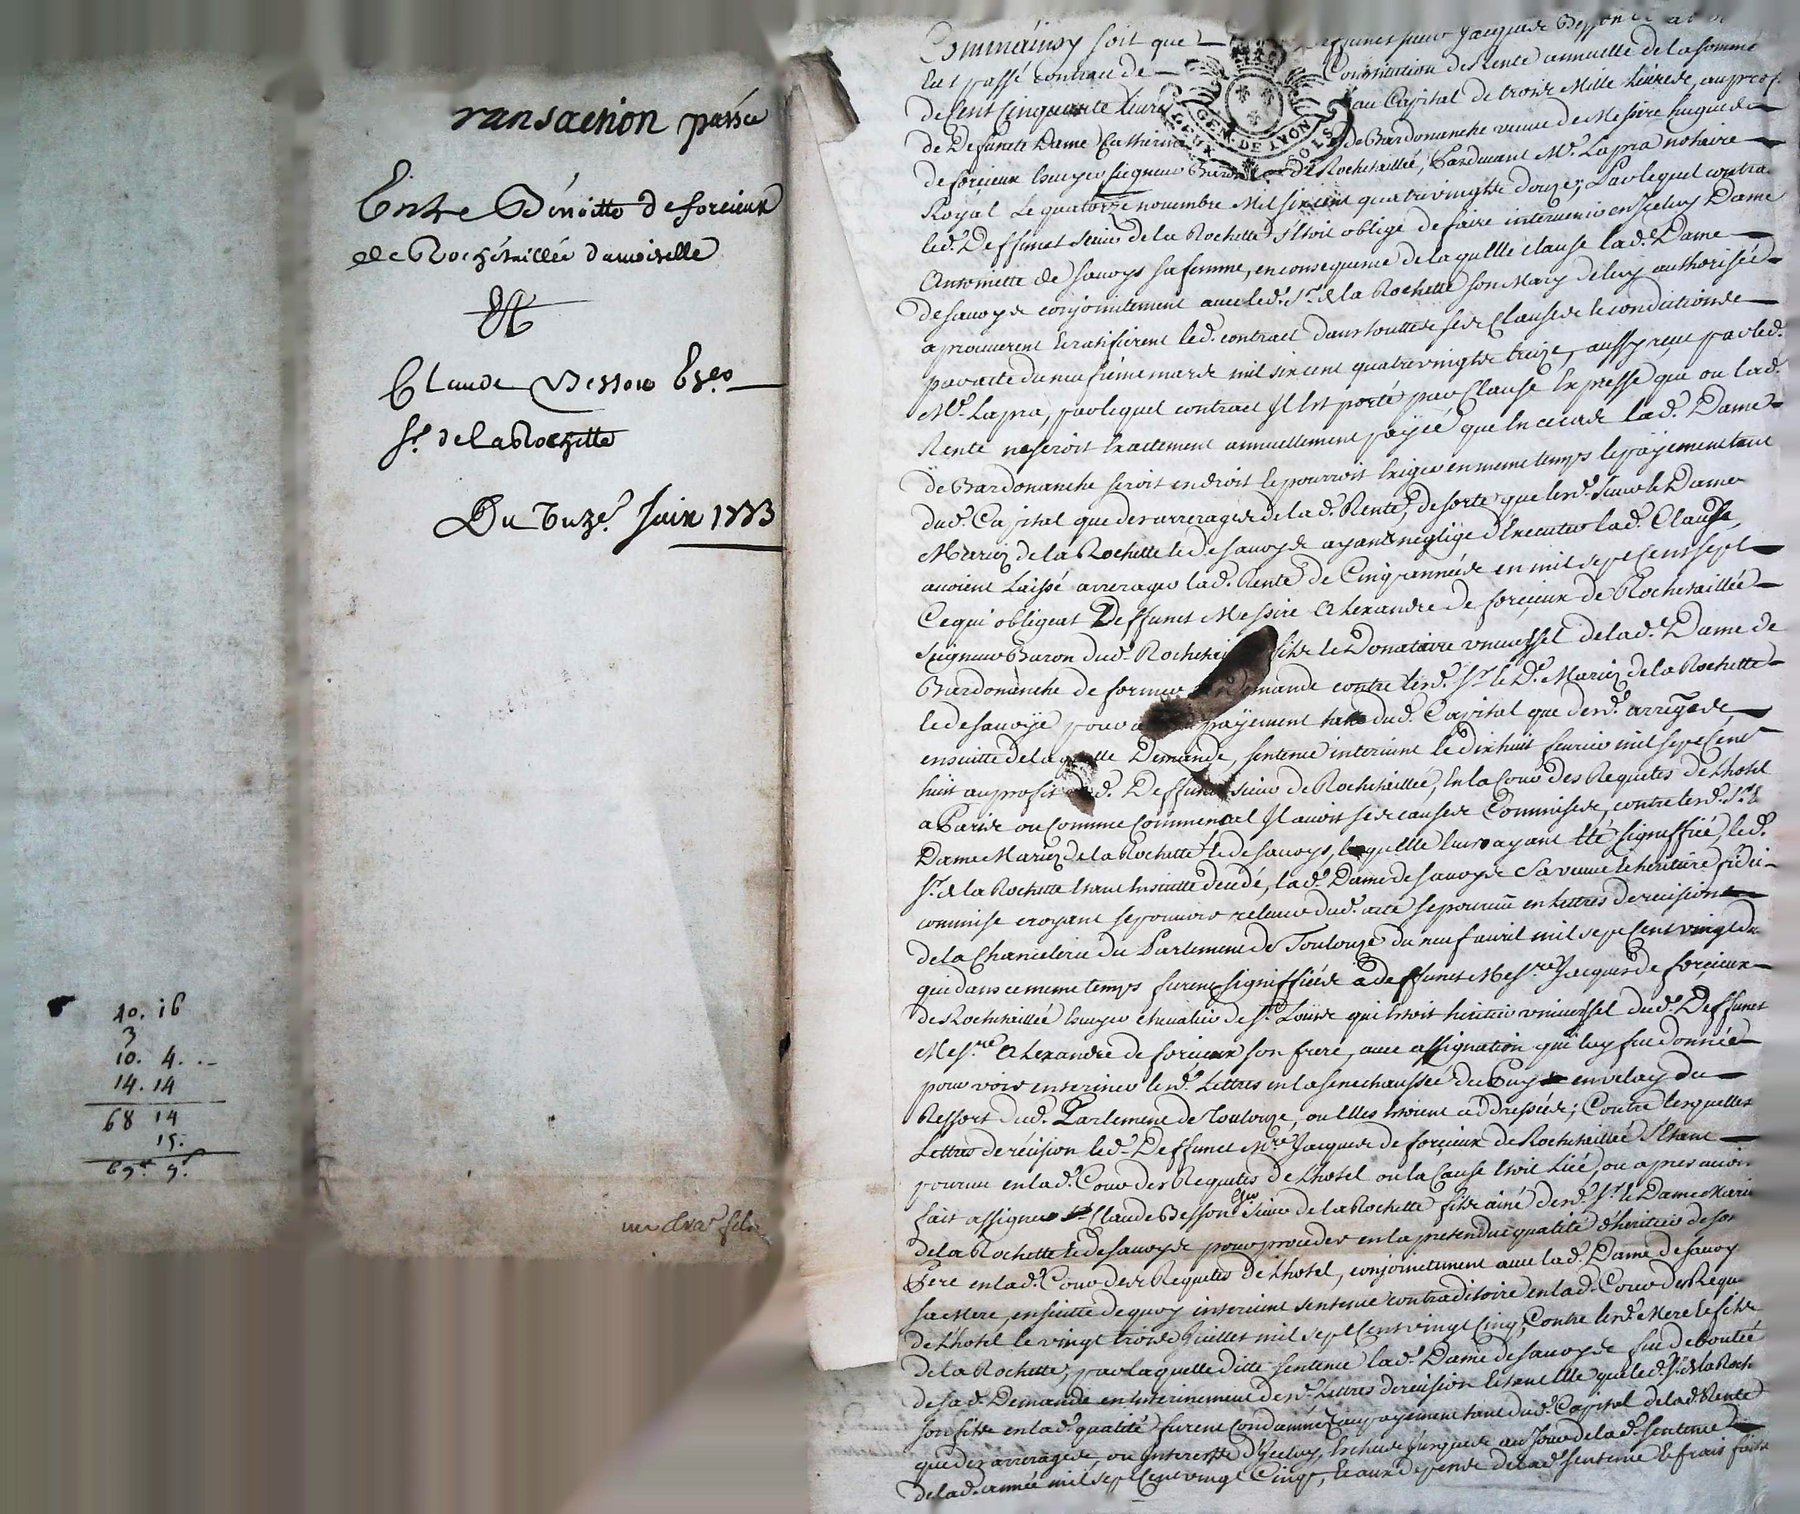 ransaction passée
Entre Bénoitte de forcieux
de Rochétaillée damoiselle
Et
Claude Besson
Sr. de la Rochette
Du Juin
40. 16
3
10. 4.
14. 14
68 14
15.
Comme ainsy soit que deffunct sieur Jacques Besson
Eut passé contract de Constitution de Rente annuelle de la somme
de Cent Cinquante Livres au Capital de trois Mille Livres, au prof.
de Deffuncte Dame Catherine de Bardonanche veuve de Messire hugues de
forcieux Escuyer seigneur Baron de Rochetaillée, Pardevant Me. Lapra notaire
Royal Le quatorze novembre Mil six cent quatre vingts douze, Par lequel contra
led. Deffunct sieur de la Rochette s'Etoit obligé de faire intervenir en Iceluy Dame
Antoinette de sauoys sa femme, en consequence de laquelle clause lad. Dame
de sauoys conjointement avec led. Sr. de la Rochette son Mary de luy authorisée
aprouverent Et ratifierent led. contract dans touttes ses Clauses et conditions
par acte du neufiême mars mil six cent quatre vingts treize, aussy reçu par led.
Me. Lapra, par lequel contract Il Est porté par Clause Expresse que ou lad.
Rente ne seroit Exactement annuellement payée que En ce cas lad. Dame
de Bardonanche seroit en droit et pourroit Exiger en meme temps le payement tant
dud. Capital que des arrerages de lad. Rente, de sorte que lesd. sieur et Dame
Mariez de la Rochette et de sauoys ayant négligé d'Executer lad. Clause
avoient Laissé arrerager lad. Rente de Cinq années en mil sept Cent sept
Ce qui obligeat Deffunct Messire Alexandre de forcieux de Rochetaillée
Seigneur Baron dud. fils et Donataire universel de lad. Dame de
Bardonanche de former demande contre lesd. Sr. et De. Mariez de la Rochette
et de sauoye pour payement tant dud. Capital que desd. arrerages
ensuitte de laquelle Demande, sentence intervint le dix huit feurier mil sept Cent
huit au profit dud. Deffunct sieur de Rochetaillée, En la Cour des Requetes de L'hotel
a Paris ou comme commensal Il avoit ses causes Commises, contre lesd. Sr. et
Dame Mariez de la Rochette et de sauoys, laquelle leur ayant Eté signiffiée, led.
Sr. de la Rochette Etant Ensuitte decedé, lad. Dame de sauoys sa veuve et heritiere fidei
commise croyant se pouvoir relever dud. acte se pourvut en Lettres de rescision
de la Chancelerie du Parlement de Toulouze du neuf auril mil sept Cent vingt
qui dans ce meme temps furent signiffiées a deffunct Messre. Jacques de forcieux
de Rochetaillée Escuyer chevalier de St. Louis qui Etoit heritier universel dud. Deffunct
Messre. Alexandre de forcieux son frere, avec assignation qui luy fut donnée
pour voir enteriner lesd. Lettres en la senechaussée du Puy en velay du
Ressort dud. Parlement de Toulouze, ou Elles Etoient addressées; Contre lesquelles
Lettres de récision led. Deffunct Mre. Jacques de forcieux de Rochetaillée s'Etant
pourvu en lad. Cour des Requetes de L'hotel ou la Cause Etoit Liée, ou apres avoir
fait assigner Claude Besson Sieur de la Rochette fils ainé desd. Sr. et Dame Mariez
de la Rochette et de sauoys pour proceder en la pretendue qualité d'heritier de son
Pere en lad. Cour des Requetes de L'hotel, conjointement avec lad. Dame de sauoy
sa Mere, ensuitte de quoy intervint sentence contradictoire en lad. Cour des Reque
de L'hotel le vingt trois Juillet mil sept Cent vingt Cinq, Contre lesd. Mere et fils
de la Rochette, par laquelle ditte sentence lad. Dame de sauoys fut deboutée
de sad. Demande en Enterinement desd. Lettres de récision Et tant Elle que led. Sr. de la Roch
son fils en lad. qualité furent Condamnez au payement tant dud. Capital de lad. Rente
que des arrerages, ou interests d'Iceluy, Echus jusques au Jour de lad. sentence
de lad. année mil sept Cent vingt Cinq, Et aux depens de lad. sentence Et frais faits
GEN. DE LYON
DEUX SOLS